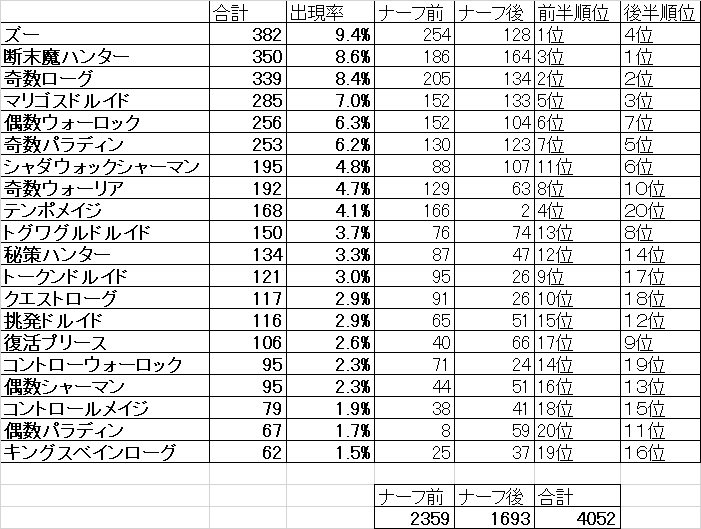 合計 出現率 ナーフ前 ナーフ後 前半順位 後半順位
ズー 382 9.4% 254 128 1位 4位
断末魔ハンター 350 8.6% 186 164 3位 1位
奇数ローグ 339 8.4% 205 134 2位 2位
マリゴスドルイド 285 7.0% 152 133 5位 3位
偶数ウォーロック 256 6.3% 152 104 6位 7位
奇数パラディン 253 6.2% 130 123 7位 5位
シャダウォックシャーマン 195 4.8% 88 107 11位 6位
奇数ウォーリア 192 4.7% 129 63 8位 10位
テンポメイジ 168 4.1% 166 2 4位 20位
トグワグルドルイド 150 3.7% 76 74 13位 8位
秘策ハンター 134 3.3% 87 47 12位 14位
トークンドルイド 121 3.0% 95 26 9位 17位
クエストローグ 117 2.9% 91 26 10位 18位
挑発ドルイド 116 2.9% 65 51 15位 12位
復活プリース 106 2.6% 40 66 17位 9位
コントローウォーロック 95 2.3% 71 24 14位 19位
偶数シャーマン 95 2.3% 44 51 16位 13位
コントロールメイジ 79 1.9% 38 41 18位 15位
偶数パラディン 67 1.7% 8 59 20位 11位
キングスベインローグ 62 1.5% 25 37 19位 16位
ナーフ前 ナーフ後 合計
2359 1693 4052